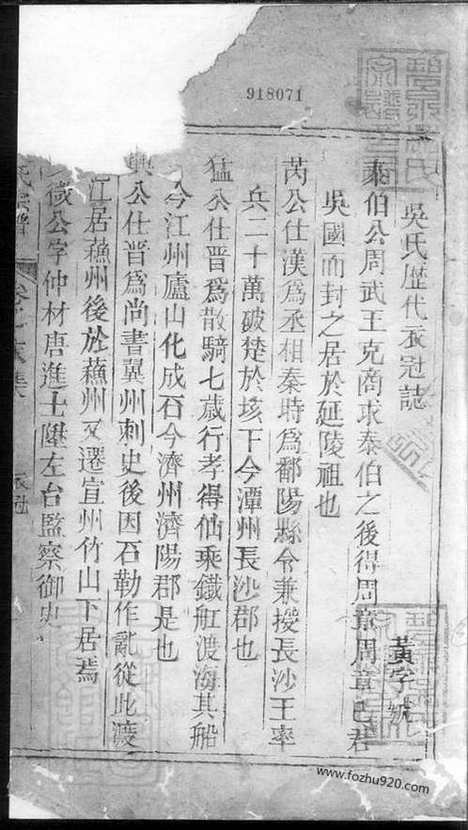 918071
吳氏歷代衣冠誌
黃字號
泰伯公周武王克商求泰伯之後得周章周章已君
吳國而封之居於延陵祖也
芮公仕漢爲丞相秦時爲鄱陽縣令兼授長沙王率
兵二十萬破楚於垓下今潭州長沙郡也
猛公仕晋爲散騎七歲行孝得仙乘鐵舡渡海其船
今江州廬山化成石今濟州濟陽郡是也
公仕晋爲尚書冀州刺史後因石勒作亂從此渡
江居蘓州後於蘓州又遷宣州竹山下居焉
公字仲材唐進士陞左台監察御史
www.fozhu920.com